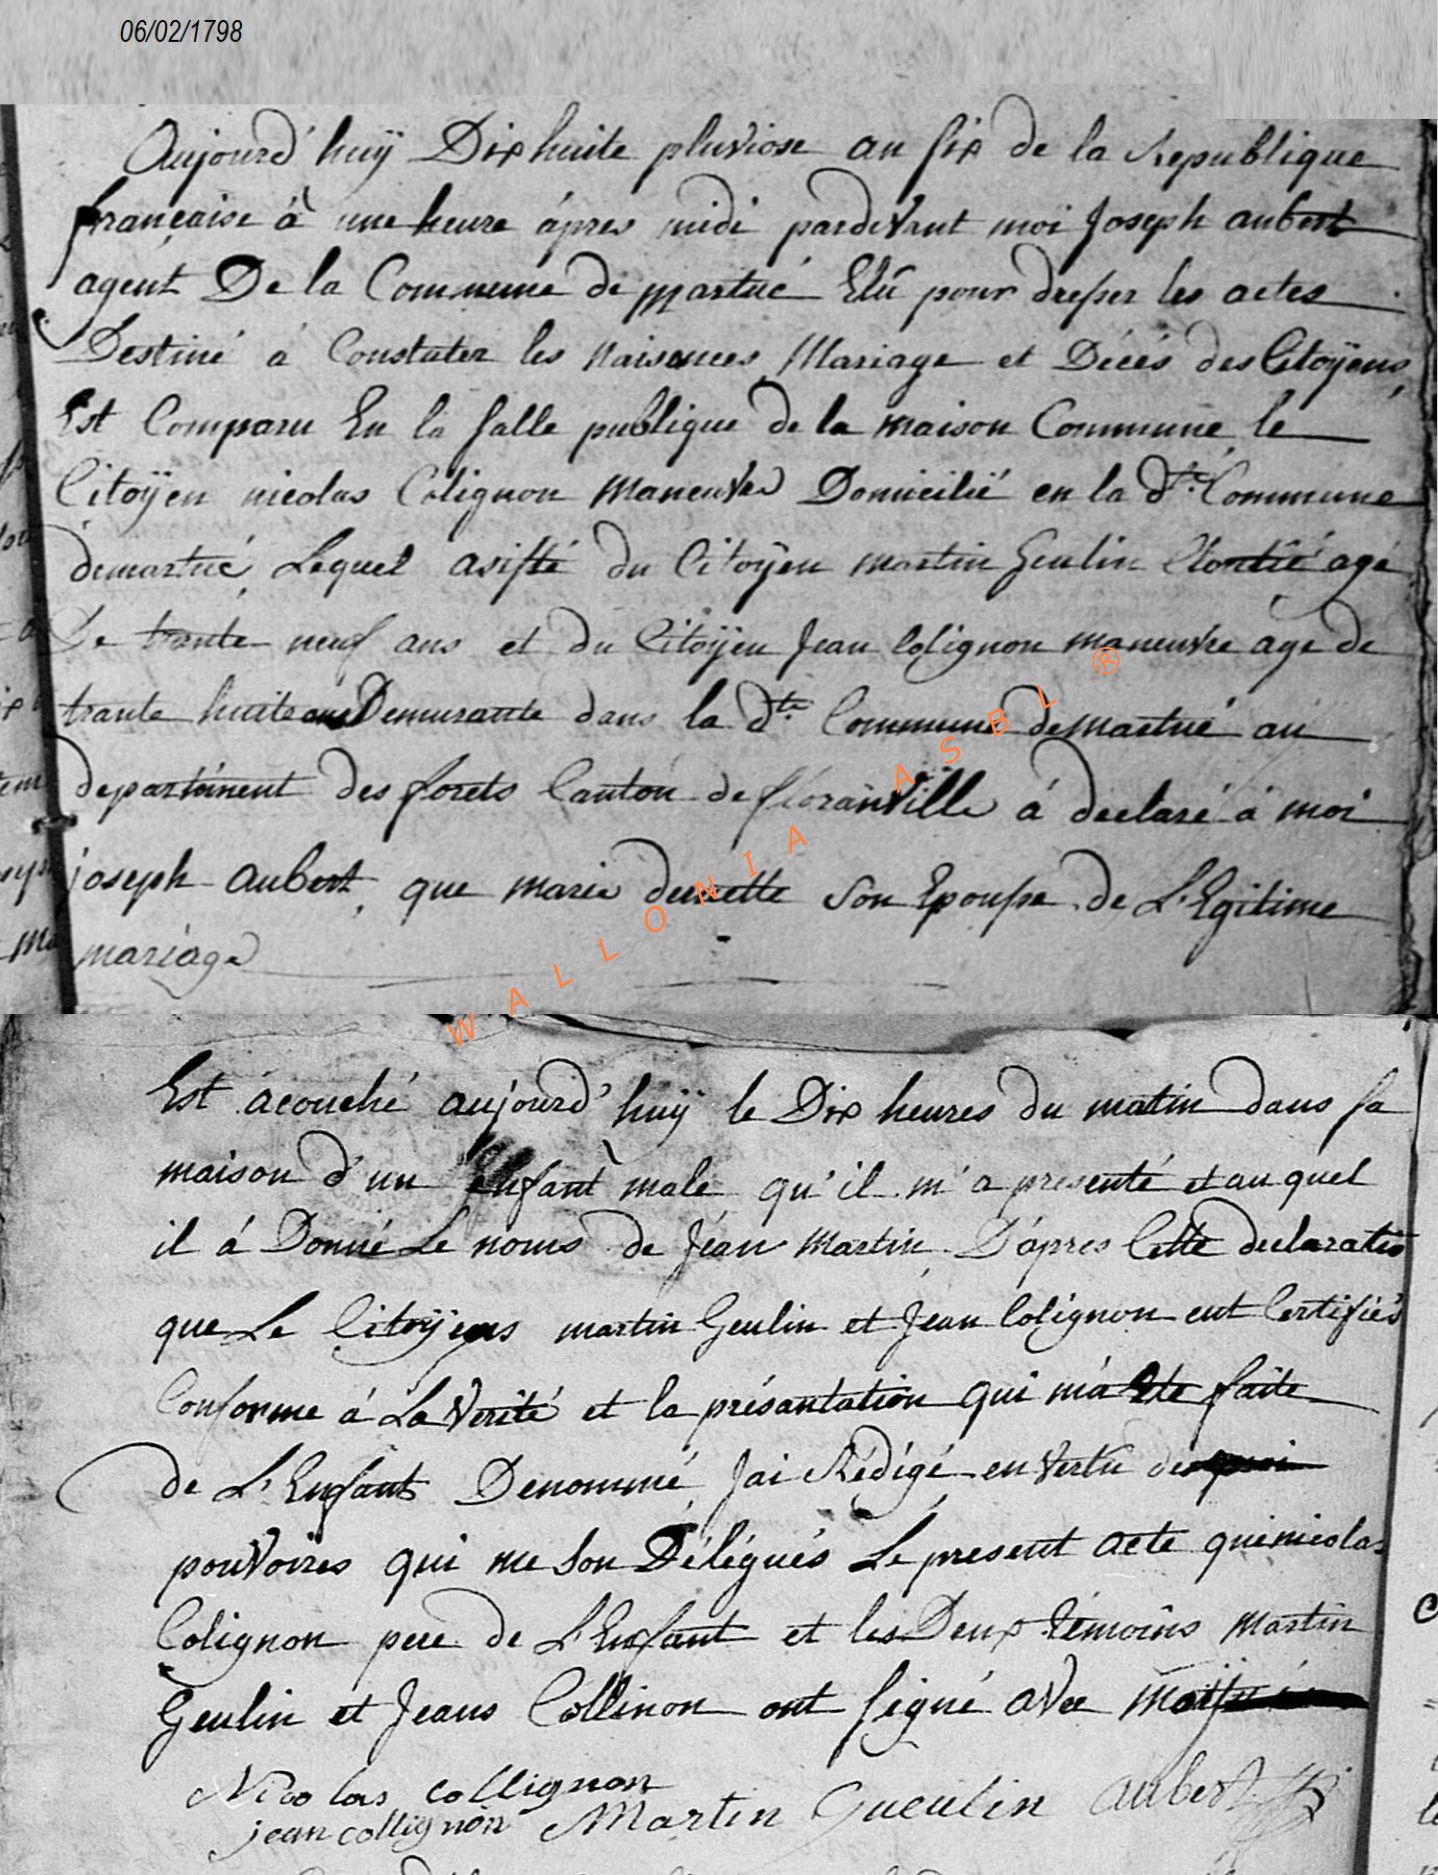 06/02/1798
Aujourd'huÿ Dix huite pluviose an six de la Republique
française à une heure ápres midi pardevant moi Joseph aubert
agent De la Commune de martué Elû pour dresser les actes
Destiné á Constater les naisances Mariage et Décés des Citoÿens
Est Comparu En la salle publique de la maison Commune le
Citoÿen nicolas Colignon maneuvre Domicilié en la dte. Commune
demartué Lequel asisté du Citoÿen martin Geulin agé
De trante neuf ans et du Citoÿen Jean Colignon maneuvre áge de
trante huite ans Demurante dans la dte. Commune demartué au
departément des forets Canton de floranville á declaré á moi
joseph aubert, que marie son Epousse de L'Egitime
mariage
Est acouché aujourd'huÿ le Dix heures du matin dans sa
maison d'un Enfant male qu'il m'a presenté et au quel
il á Donné Le noms de Jéan Martin D'ápres Cette declaratio
que Le Citoÿens martin Geulin et Jean Colignon ent Certifiés
Conforme á La Verité et la présantation qui m'á Ete faite
de L'Enfant Denommé J'ai Rédigé en vertu des
pouvoires qui me son Délégués Le present acte quénicolas
Colignon pere de L'Enfant et les Deux témoins Martin
Geulin et Jeans Collinon ont signé avec
Nicolas collignon
jean collignon Martin Gueulin aubert
WALLONIA ASBL ®